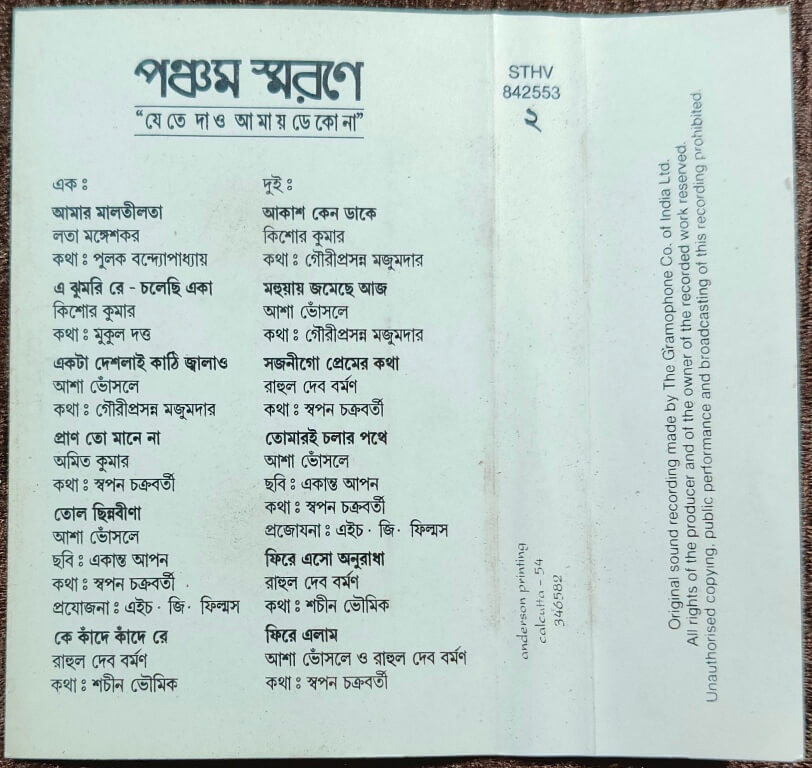 পঞ্চম স্মরণে
“যে তে দাও আমায় ডেকো না”
এক :
আমার মালতীলতা
লতা মঙ্গেশকর
কথা : পুলক বন্দ্যোপাধ্যায়
এ ঝুমরি রে - চলেছি একা
কিশোর কুমার
কথা : মুকুল দত্ত
একটা দেশলাই কাঠি জ্বালাও
আশা ভোঁসলে
কথা : গৌরীপ্রসন্ন মজুমদার
প্রাণ তো মানে না
অমিত কুমার
কথা : স্বপন চক্রবর্তী
তোল ছিন্নবীণা
আশা ভোঁসলে
ছবি : একান্ত আপন
কথা : স্বপন চক্রবর্তী
প্রযোজনা : এইচ · জি · ফিল্মস
কে কাঁদে কাঁদে রে
রাহুল দেব বর্মণ
কথা : শচীন ভৌমিক
দুই :
আকাশ কেন ডাকে
কিশোর কুমার
কথা : গৌরীপ্রসন্ন মজুমদার
মহুয়ায় জমেছে আজ
আশা ভোঁসলে
কথা : গৌরীপ্রসন্ন মজুমদার
সজনীগো প্রেমের কথা
রাহুল দেব বর্মণ
কথা : স্বপন চক্রবর্তী
তোমারই চলার পথে
আশা ভোঁসলে
ছবি : একান্ত আপন
কথা : স্বপন চক্রবর্তী
প্রজোযনা : এইচ · জি · ফিল্মস
ফিরে এসো অনুরাধা
রাহুল দেব বর্মণ
কথা : শচীন ভৌমিক
ফিরে এলাম
আশা ভোঁসলে ও রাহুল দেব বর্মণ
কথা : স্বপন চক্রবর্তী
STHV
842553
২
anderson printing
calcutta - 54
346582
Original sound recording made by The Gramophone Co. of India Ltd.
All rights of the producer and of the owner of the recorded work reserved.
Unauthorised copying, public performance and broadcasting of this recording prohibited.